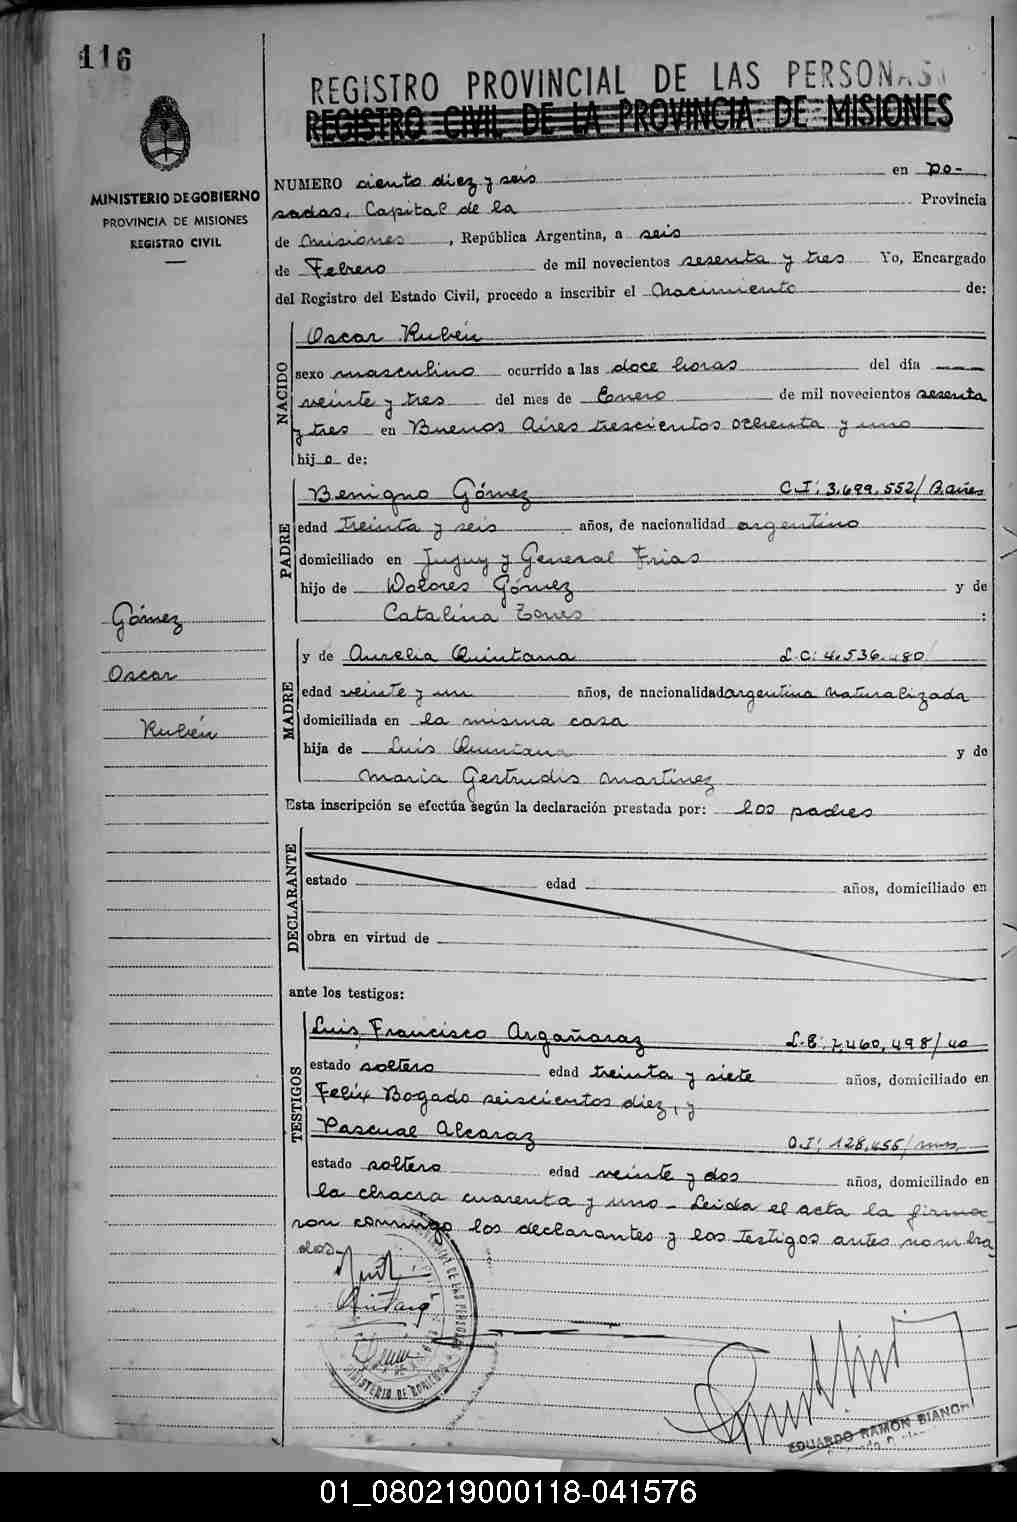 116
REGISTRO PROVINCIAL DE LAS PERSONAS
REGISTRO CIVIL DE LA PROVINCIA DE MISIONES
MINISTERIO DE GOBIERNO
PROVINCIA DE MISIONES
REGISTRO CIVIL
NUMERO ciento diez y seis en Po-
sadas, Capital de la Provincia
de Misiones, República Argentina, a seis
de Febrero de mil novecientos sesenta y tres Yo, Encargado
del Registro del Estado Civil, procedo a inscribir el Nacimiento de:
NACIDO
Oscar Rubén
sexo masculino ocurrido a las doce horas del día
veinte y tres del mes de Enero de mil novecientos sesenta
y tres en Buenos Aires trescientos ochenta y uno
hijo de:
PADRE
Benigno Gómez C.I: 3.699.552/B.aires
edad treinta y seis años, de nacionalidad argentino
domiciliado en Jujuy y General Frias
hijo de Dolores Gómez y de
Catalina ;
Gómez
Oscar
Rubén
MADRE
y de Aurelia Quintana L.C: 4.536.480/
edad veinte y un años, de nacionalidad argentina naturalizada
domiciliada en la misma casa
hija de Luis Quintana y de
Maria Gertrudis Martinez
Esta inscripción se efectúa según la declaración prestada por: los padres
DECLARANTE
estado edad años, domiciliado en
obra en virtud de
ante los testigos:
TESTIGOS
Luis Francisco Argañaraz L.E: 7.460.498/40
estado soltero edad treinta y siete años, domiciliado en
Felix Bogado seiscientos diez, y
Pascual Alcaraz C.I: 128.455/mns.
estado soltero edad veinte y dos años, domiciliado en
la chacra cuarenta y uno - Leida el acta la firma-
ron conmigo los declarantes y los testigos antes nombra-
dos-
Quintana
MINISTERIO DE GOBIERNO
EDUARDO RAMON BIANCHI
01_080219000118-041576